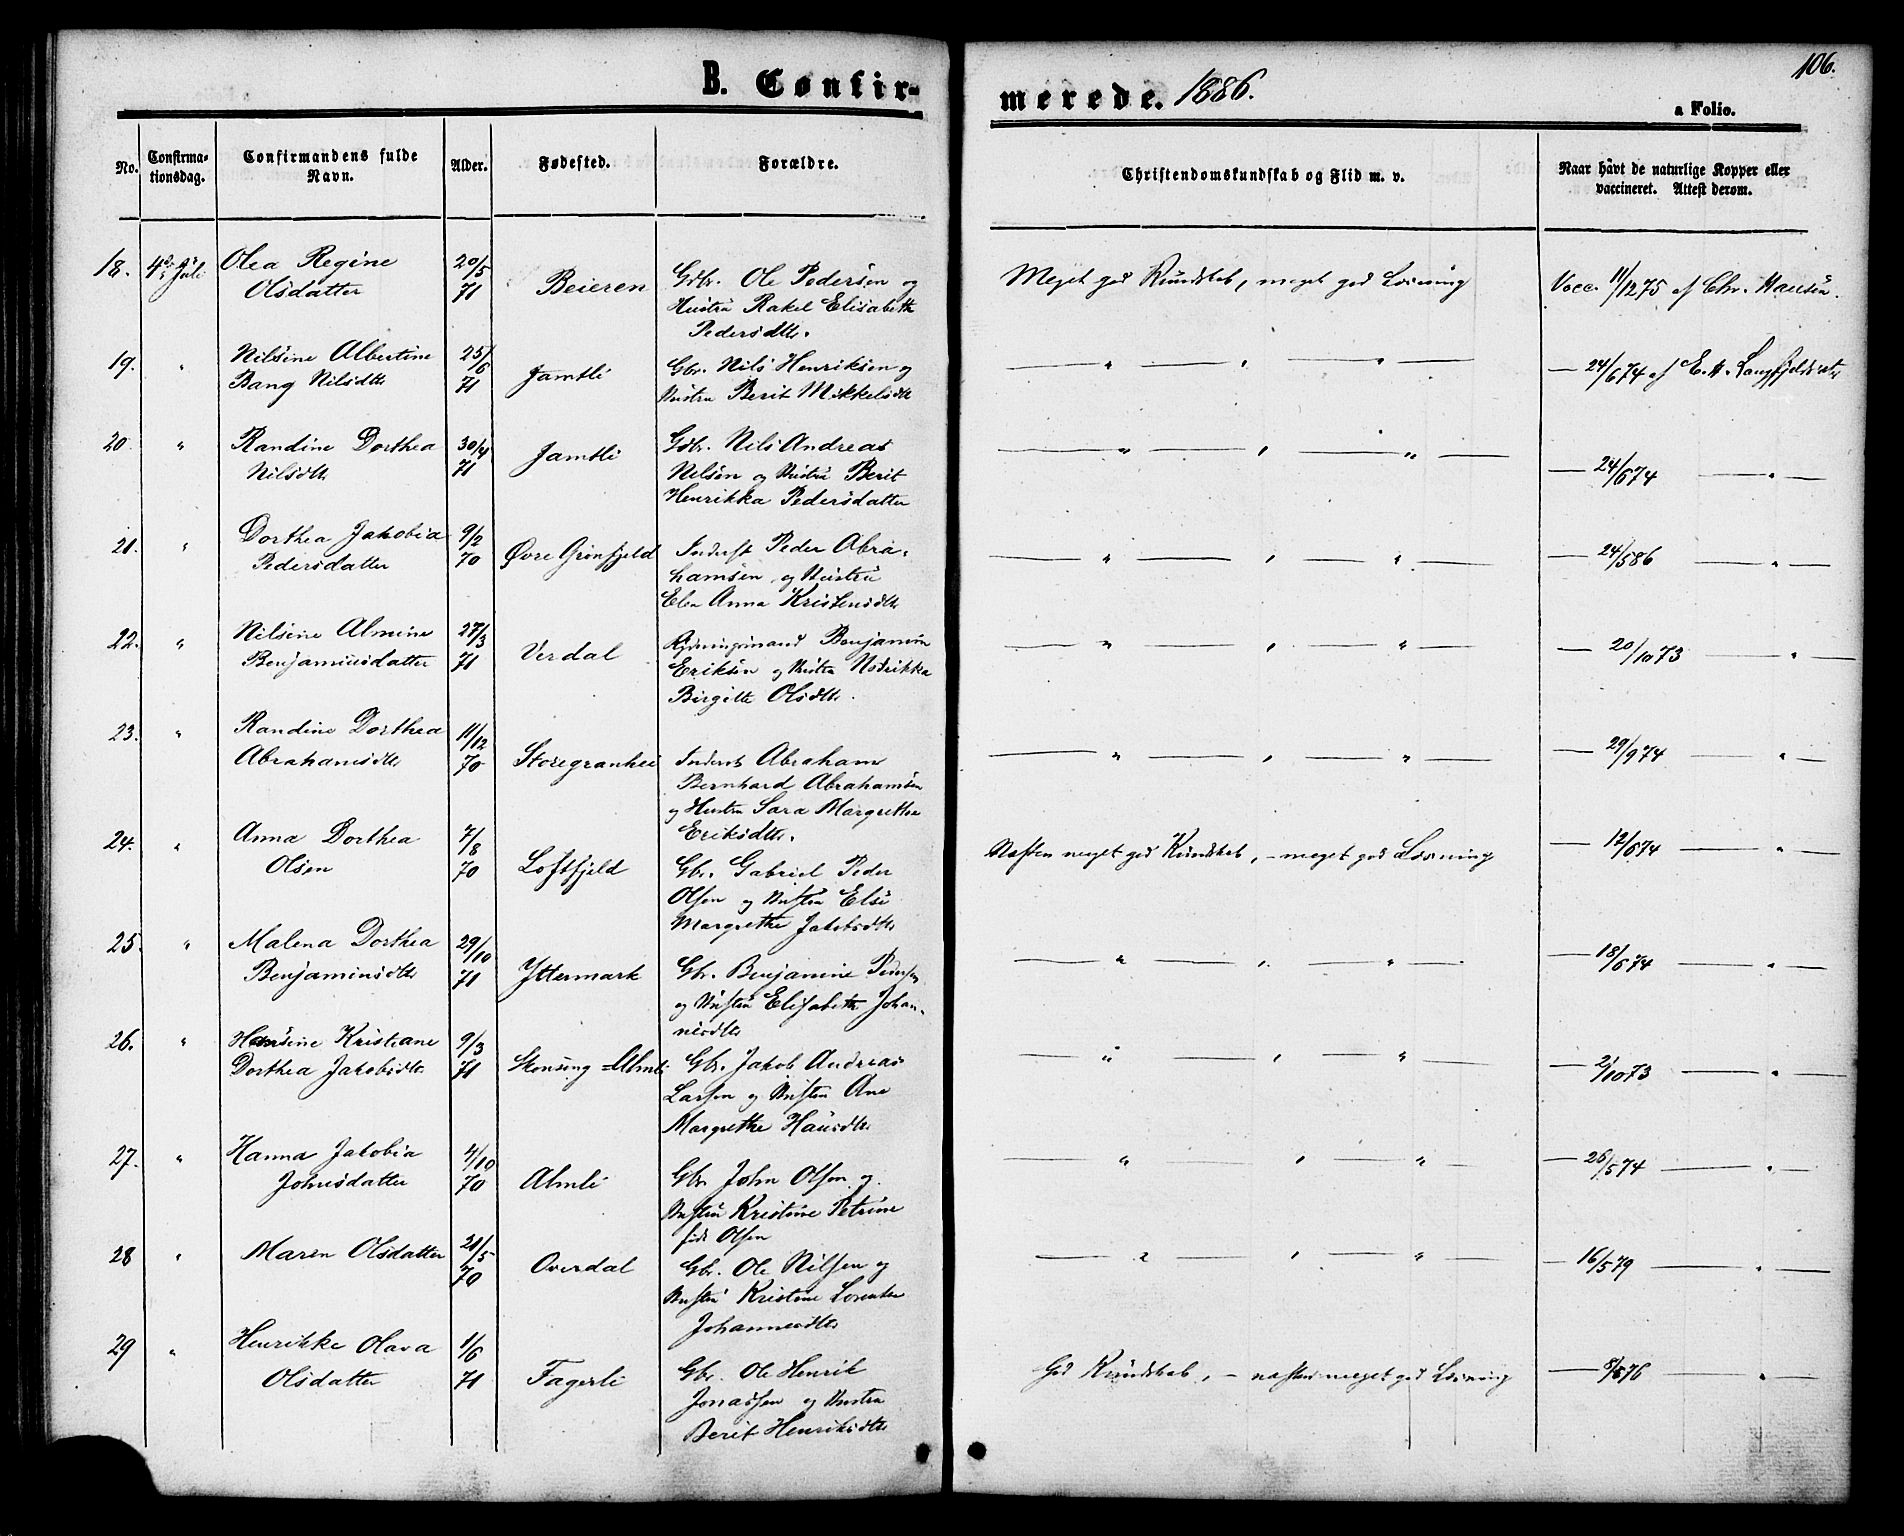 B. Confir-
merede. 1886.
106.
a Folio.
No.
Confirma-
tionsdag.
Confirmandens fulde
Navn.
Alder.
Fødested.
Forældre.
Christendomskundskab og Flid m. v.
Naar havt de naturlige Kopper eller
vaccineret. Attest derom.
18. 4de Juli Olea Regine 20/5 Beieren Gbr. Ole Pedersen og Meget god Kundskab, meget god Læsning Vacc. 11/12 75 af Chr. Hansen.
Olsdatter 71 Hustru Rakel Elisabeth
Pedersdtr.
19. " Nilsine Albertine 25/6 Jamtli Gbr. Nils Henriksen og — " — , — " — — 24/6 74 af E. A. Langfjeldsæter
Bang Nilsdtr 71 Hustru Berit Mikkelsdtr
20 " Randine Dorthea 30/4 Jamtli Gbr. Nils Andreas — " — , — " — — 24/6 74 — " —
Nilsdtr 71 Nilsen og Hustru Berit
Henrikka Pedersdatter
21. " Dorthea Jakobia 9/2 Øvre Grønfjeld Inderst Peder Abra- — " — , — " — — 24/5 86 — " —
Pedersdatter 70 hamsen og Hustru
Elen Anna Kristensdtr
22. " Nilsine Almine 27/3 Verdal Rydningsmand Benjamin — " — , — " — — 20/10 73 — " —
Benjaminsdatter 71 Eriksen og Hustru
Birgitte Olsdtr.
23. " Randine Dorthea 11/12 Storegranhei Inderst Abraham — " — , — " — — 29/9 74 — " —
Abrahamsdtr 70 Bernhard Abrahamsen
og Hustru Sara Margrethe
Eriksdtr.
24. " Anna Dorthea 7/8 Loftfjeld Gbr. Gabriel Peder Næsten meget god Kundskab, – meget god Læsning — 12/6 74 — " —
Olsen 70 Olsen og Hustru Else
Margrethe Jakobsdtr
25. " Malena Dorthea 29/10 Yttermark Gbr. Benjamine Pedersen — " — , — " — — 18/6 74 — " —
Benjaminsdtr 71 og Hustru Elisabeth Johan-
nesdtr
26. " Hansine Kristiane 9/3 Stensing=Almli Gbr. Jakob Andreas — " — , — " — — 2/10 73 — " —
Dorthea Jakobsdtr 71 Larsen og Hustru Ane
Margrethe Hansdtr
27. " Hanna Jakobia 4/10 Almli Gbr John Olsen og — " — , — " — — 26/5 74 — " —
Johnsdatter 70 Hustru Kristine Petrine
født Olsen
28 " Maren Olsdatter 21/5 Overdal Gbr. Ole Nilsen og — " — , — " — — 16/5 79 — " —
70 Hustru Kristine Lorentze
Johannesdtr
29 " Henrikke Olava 1/6 Fagerli Gbr. Ole Henrik God Kundskab, – næsten meget god Læsning — 8/5 76 — " —
Olsdatter 71 Jonassen og Hustru
Berit Henriksdtr